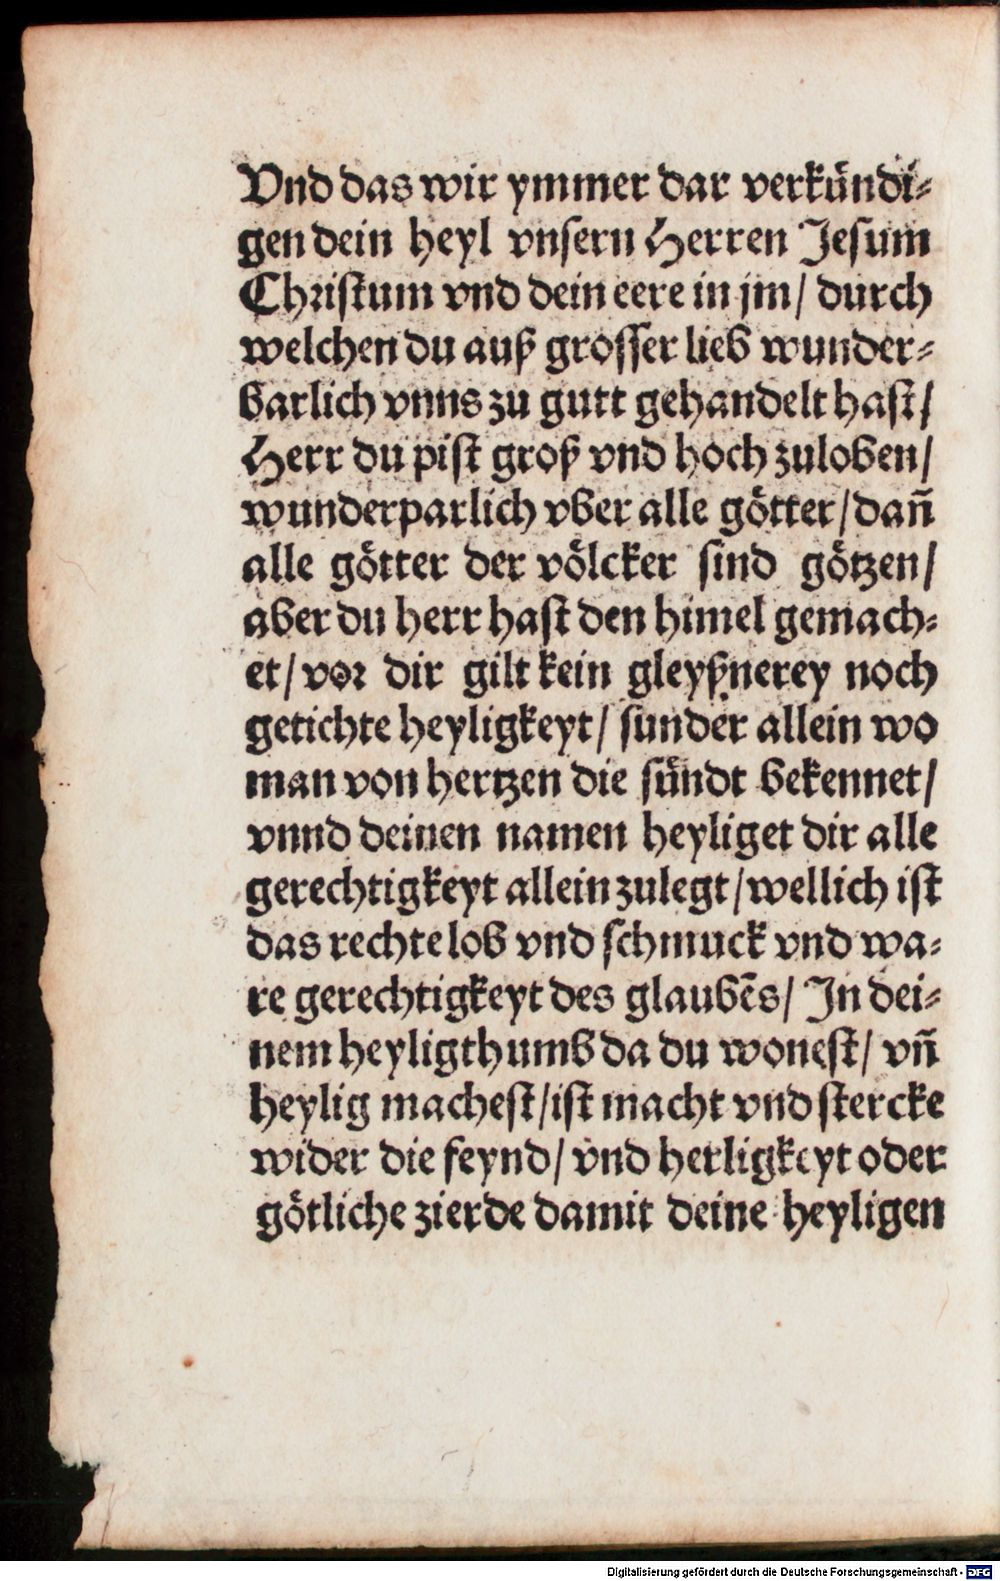 Vnd das wir ymmer dar verkündi⸗
gen dein heyl vnsern Herren Jesum
Christum vnd dein eere in jm/ durch
welchen du auß grosser lieb wunder⸗
barlich vnns zu gutt gehandelt hast/
Herr du pist groß vnd hoch zuloben/
wunderparlich vber alle götter/ dan̄
alle götter der völcker sind götzen/
aber du herr hast den himel gemach⸗
et/ vor dir gilt kein gleyßnerey noch
getichte heyligkeyt/ sunder allein wo
man von hertzen die sündt bekennet/
vnnd deinen namen heyliget dir alle
gerechtigkeyt allein zulegt/ wellich ist
das rechte lob vnd schmuck vnd wa⸗
re gerechtigkeyt des glaubēs/ In dei⸗
nem heyligthumb da du wonest/ vn̄
heylig machest/ ist macht vnd stercke
wider die feynd/ vnd herligkeyt oder
götliche zierde damit deine heyligen
Digitalisierung gefördert durch die Deutsche Forschungsgemeinschaft - DFG